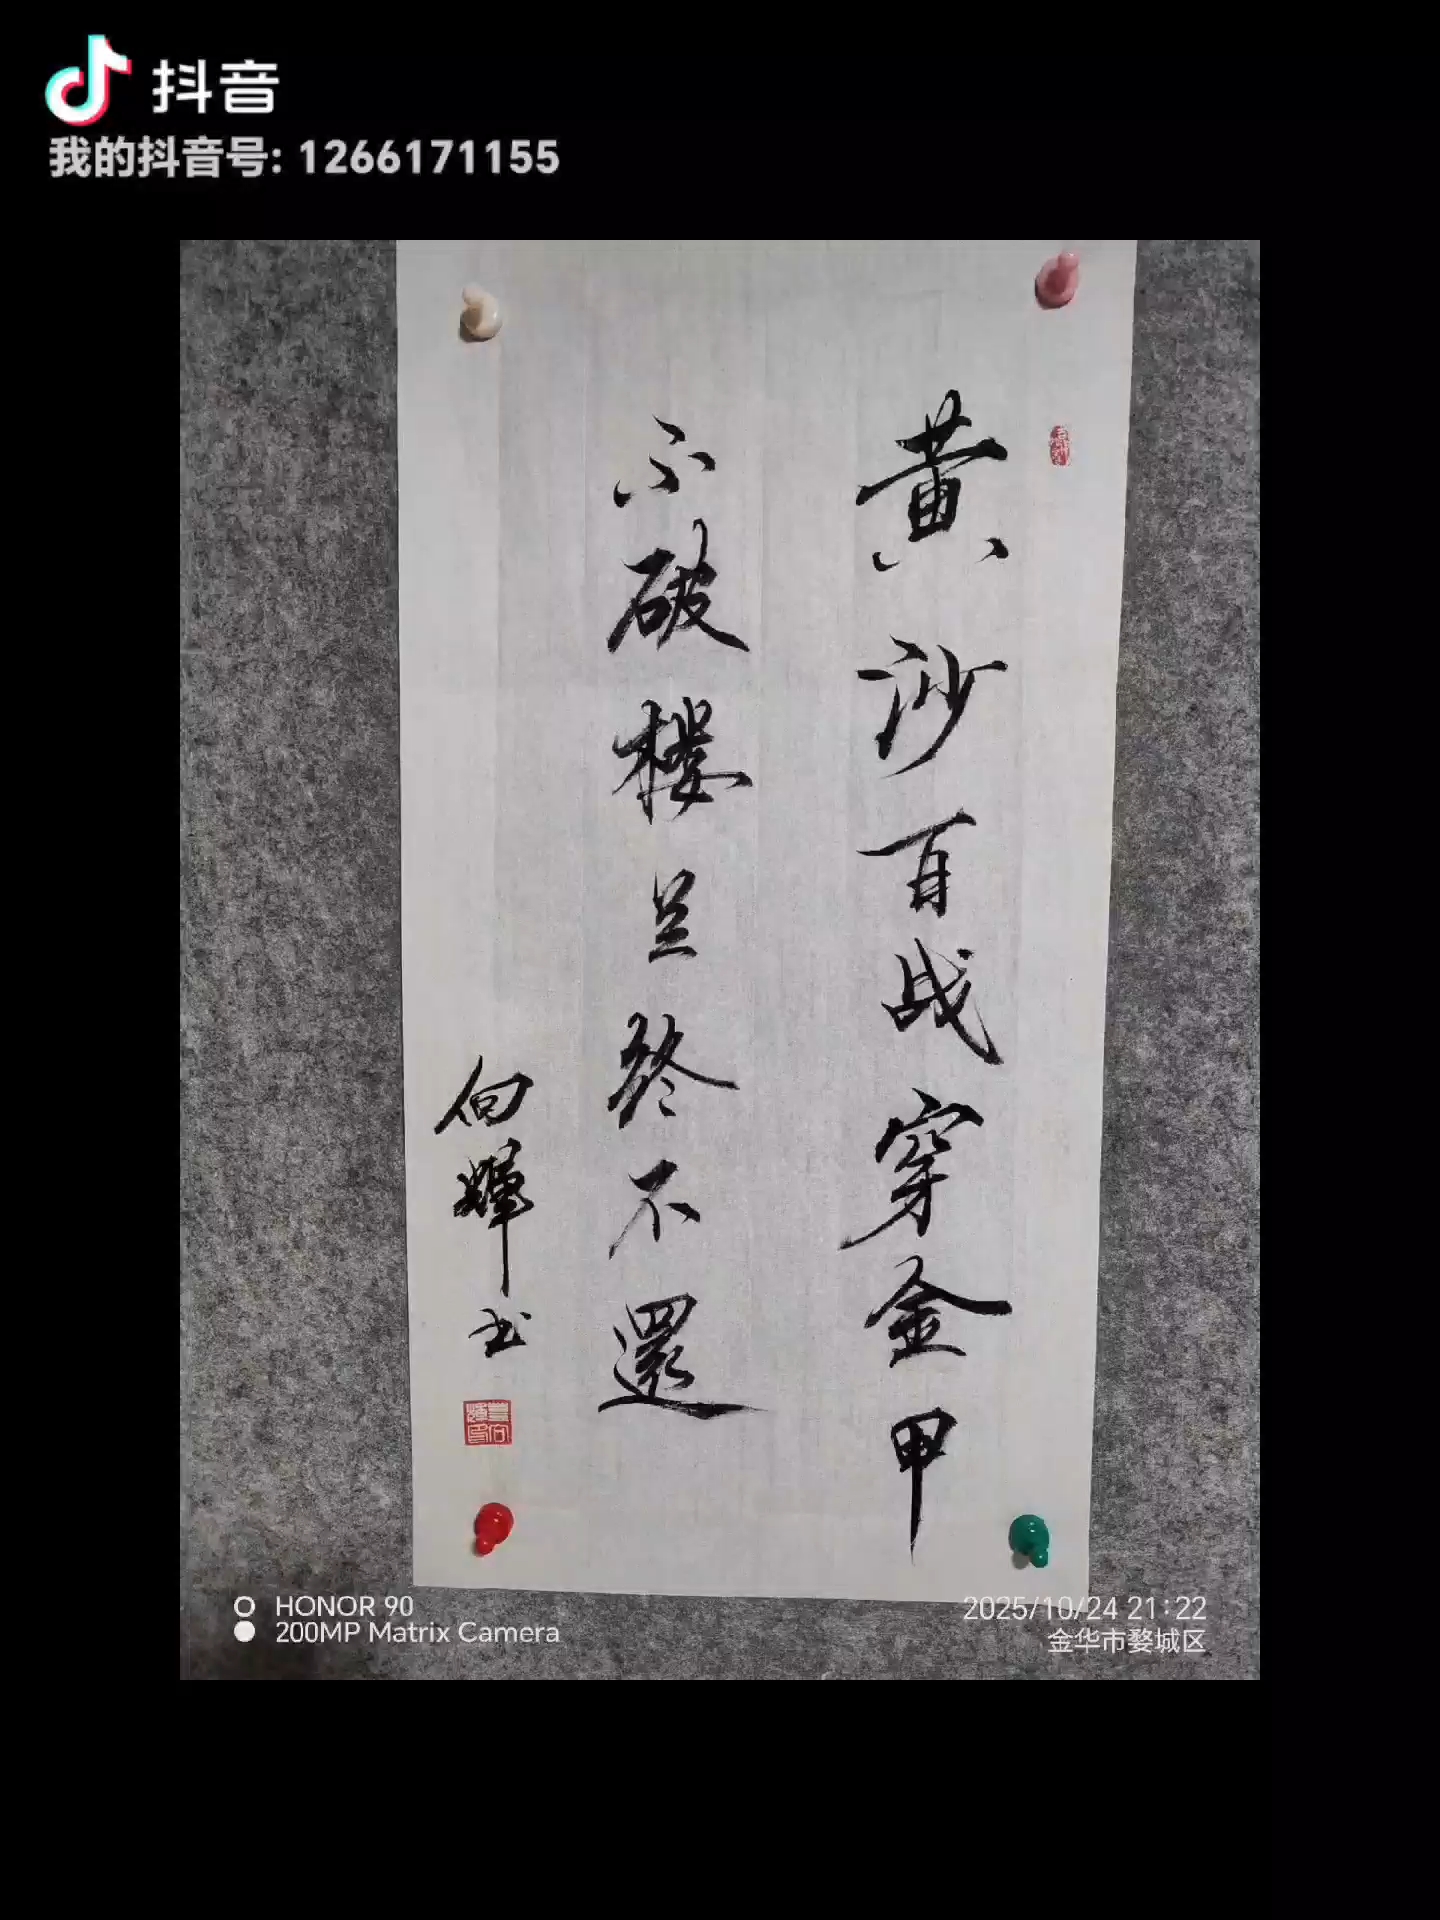 抖音
我的抖音号: 1266171155
黄沙百战穿金甲
不破楼兰终不還
向輝书
HONOR 90
200MP Matrix Camera
2025/10/24 21:22
金华市婺城区